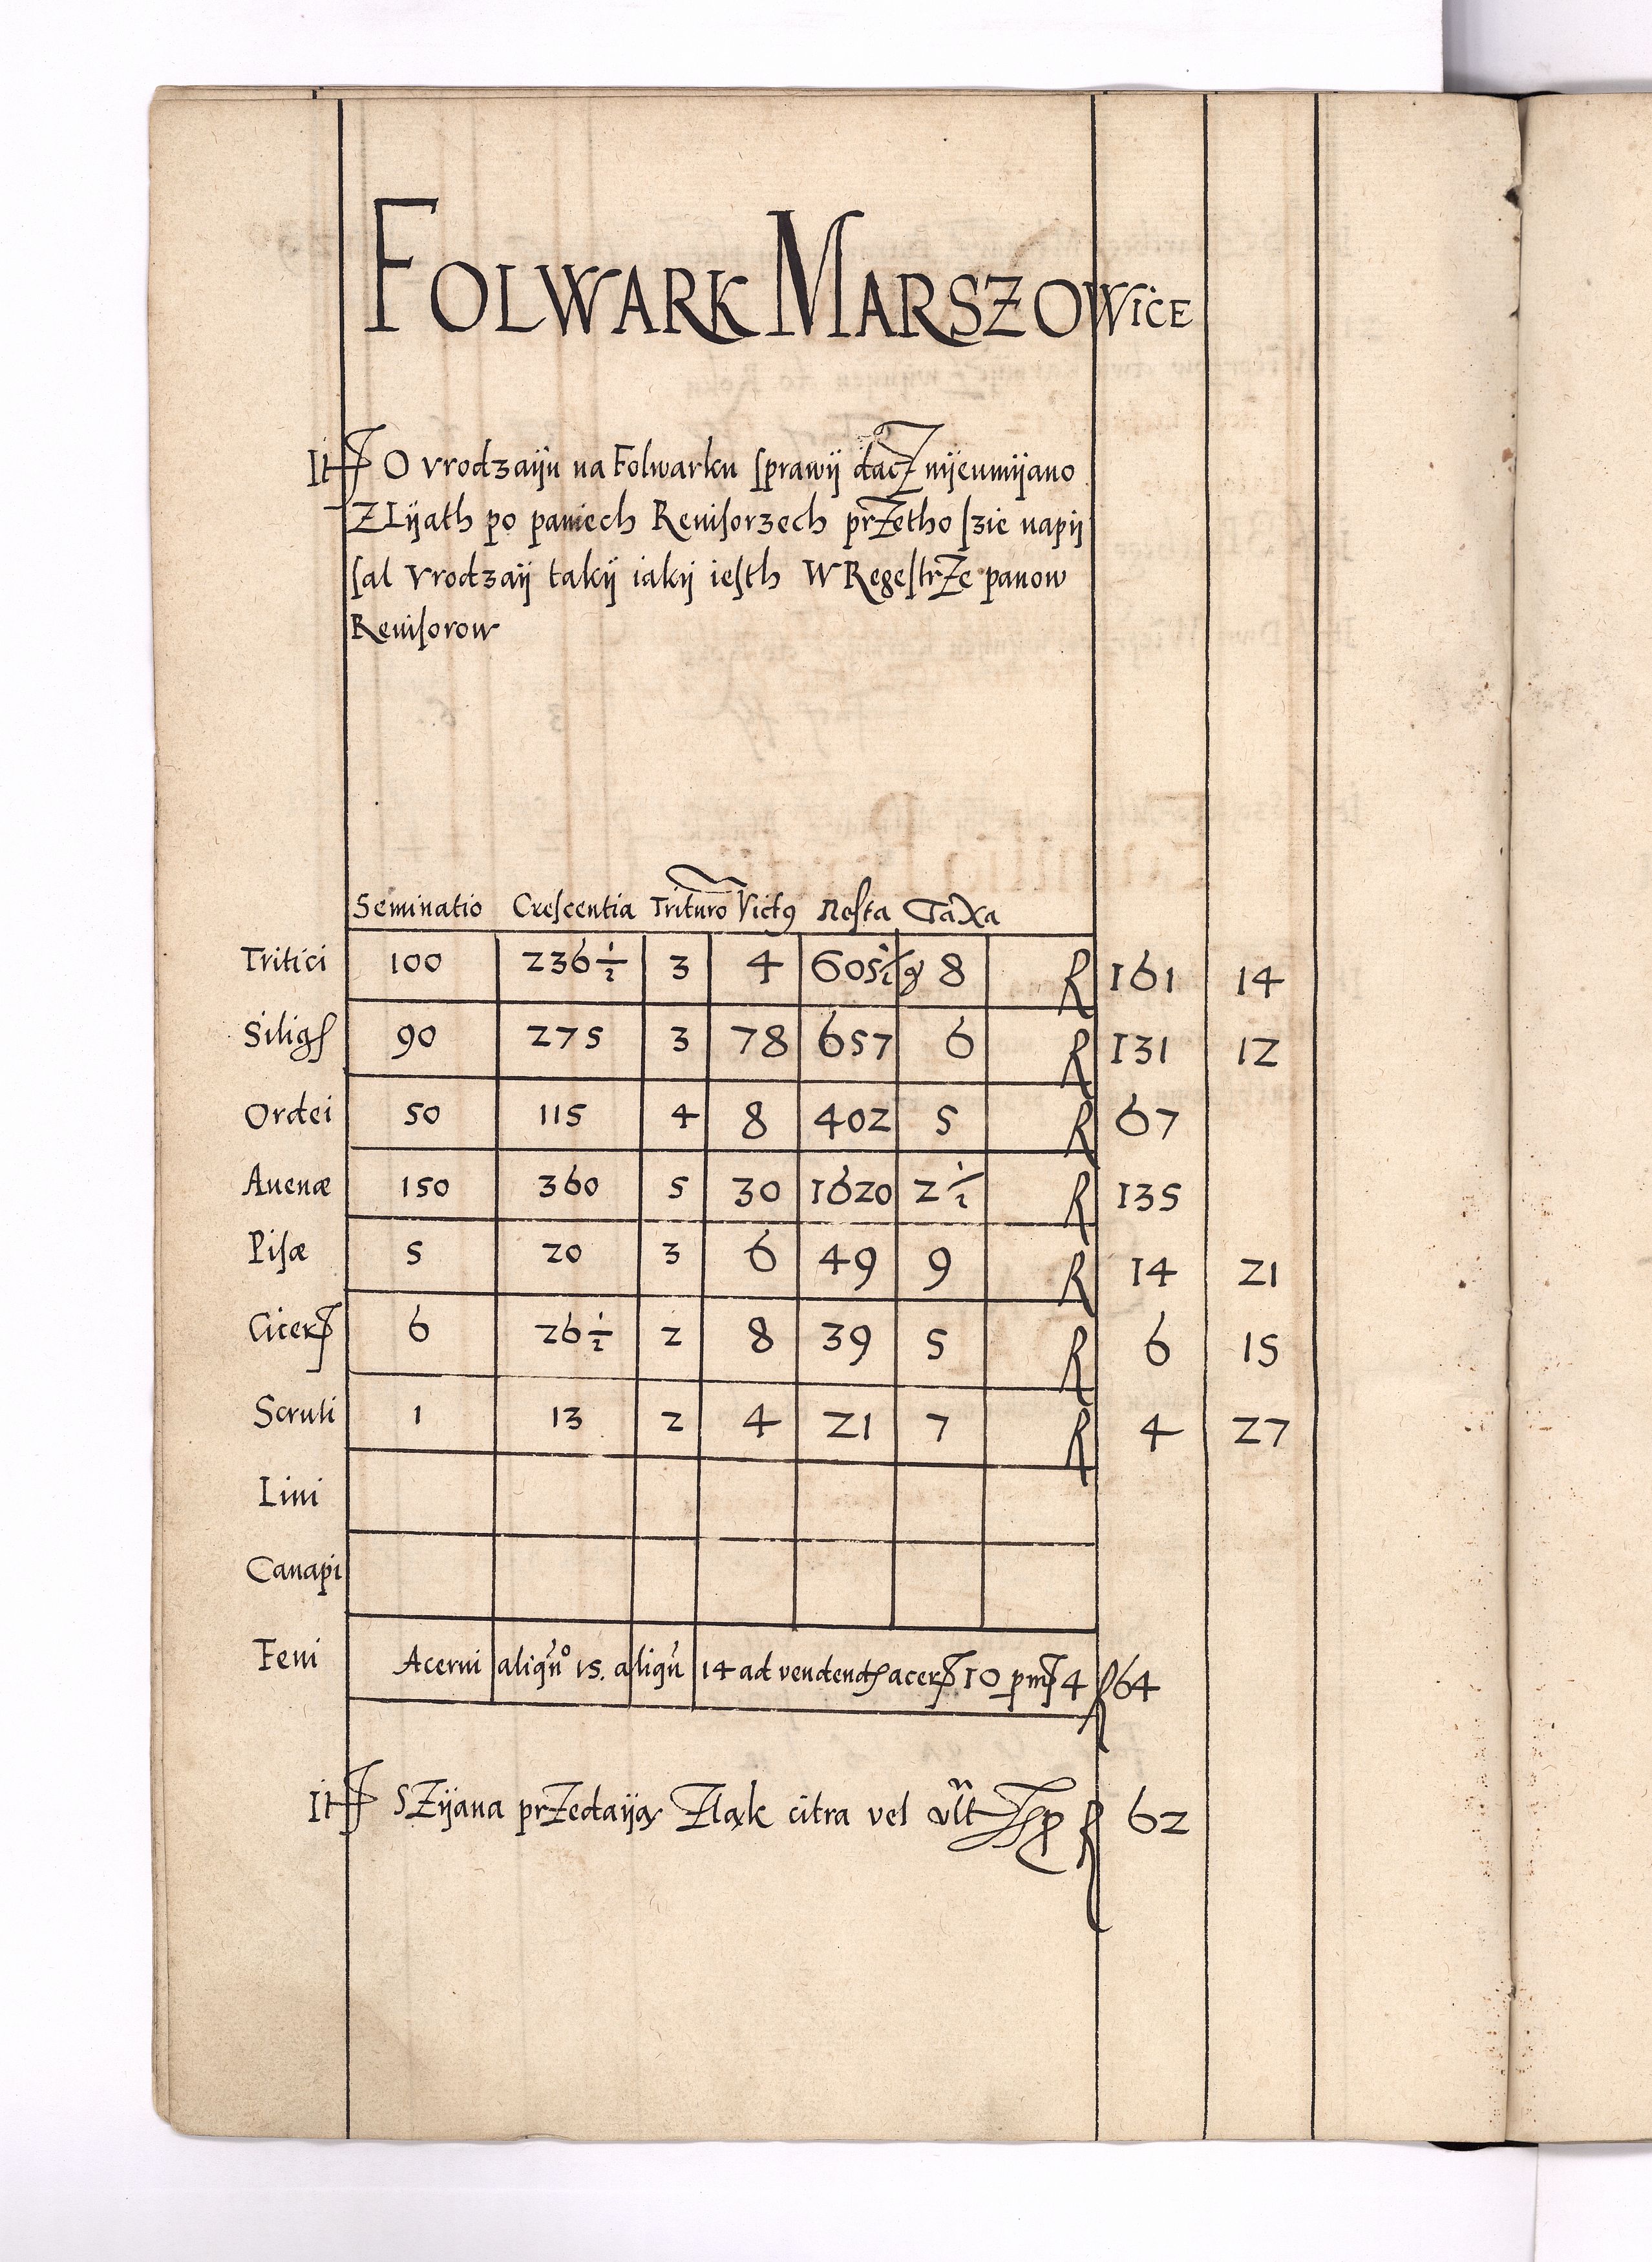 FOLWARK MARSZOWICE
It O vrodzaiju na Folwarku sprawij dacz nijeumijano
Z Lijath po paniech Reuisorzech przetho szie napij
sal Vrodzaij takij iakij iesth W Regestrze panow
Reuisorow
Seminatio Crescentia Trituro Vict9 Resta Taxa
Tritici 100 236½ 3 4 605½ g 8 R 161 14
Silig 90 275 3 78 657 6 R 131 12
Ordei 50 115 4 8 402 5 R 67
Auenæ 150 360 5 30 1620 2½ R 135
Pisæ 5 20 3 6 49 9 R 14 21
Cicer 6 26½ 2 8 39 5 R 6 15
Scruli 1 13 2 4 21 7 R 4 27
Lini
Canapi
Feni Acerui aliqn° 15. aliqn 14 ad vendend acer 10 pm 4 R 64
It SZijana przedaija Zląk citra vel vlt R 62